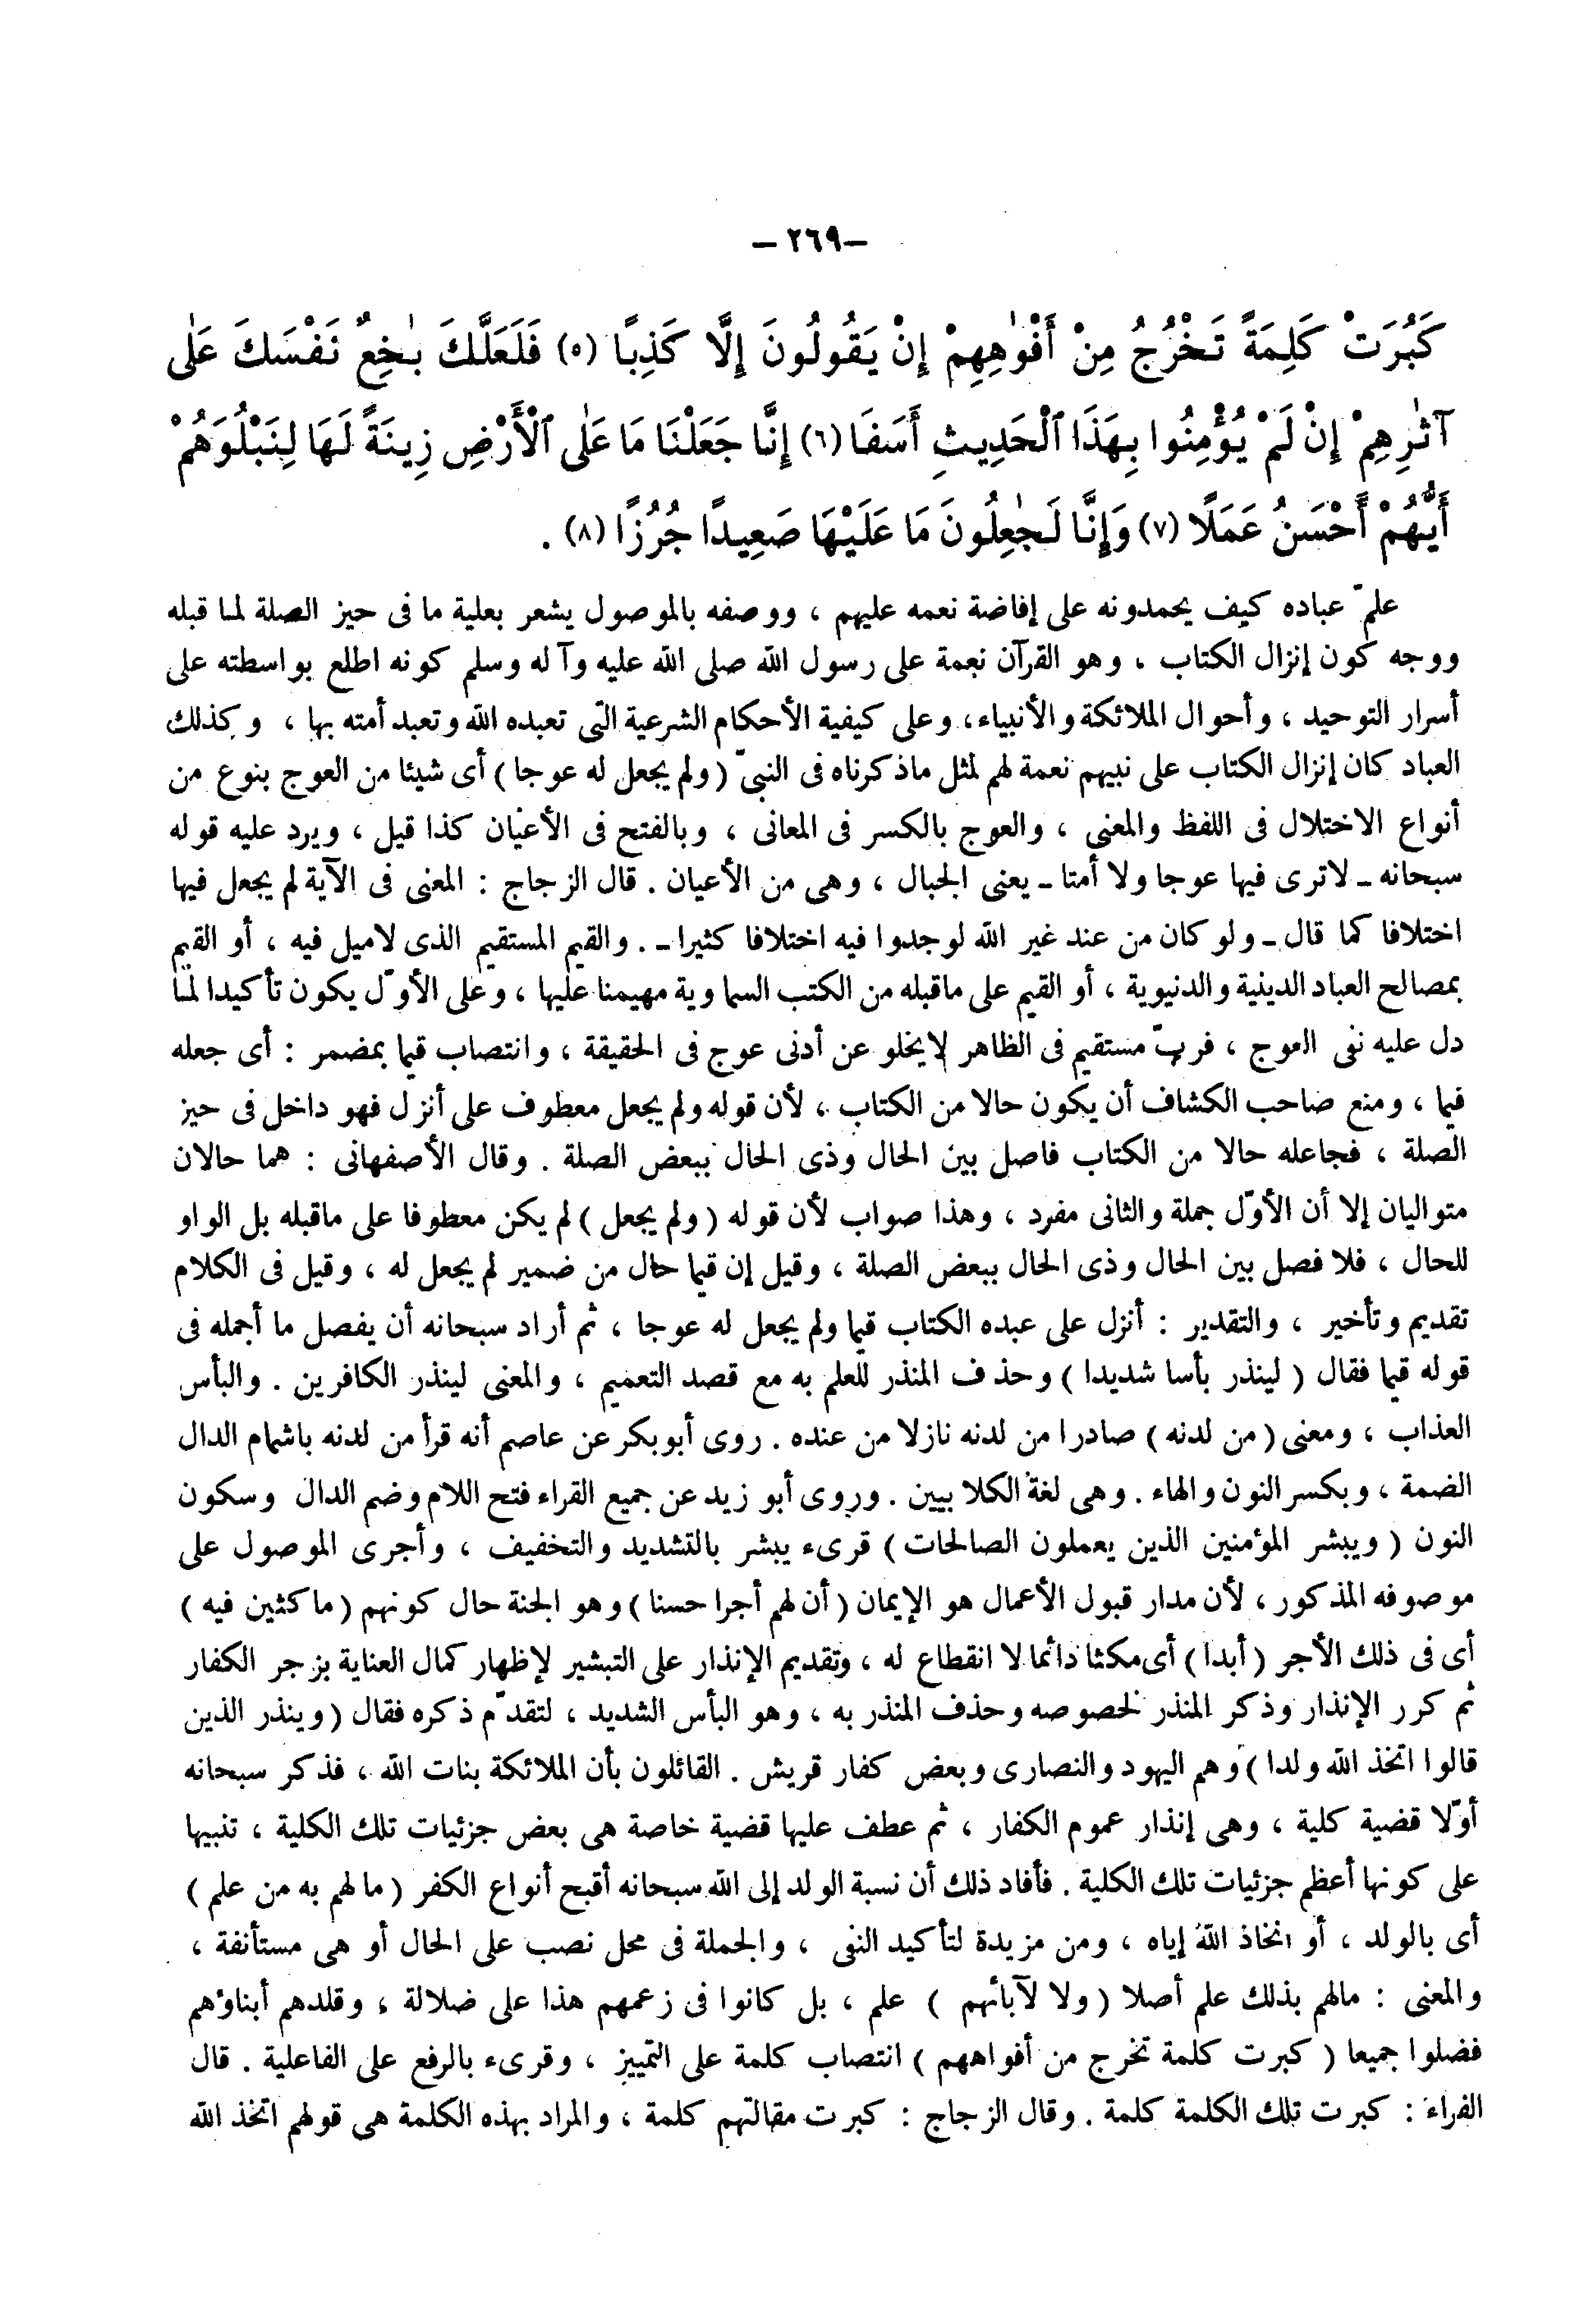 –٢٦٩–
كَبُرَتْ كَلِمَةً تَخْرُجُ مِنْ أَفْوٰهِهِمْ إِنْ يَقُولُونَ إِلَّا كَذِبًا (٥) فَلَعَلَّكَ بٰخِعٌ نَفْسَكَ عَلٰى
آثٰرِهِمْ إِنْ لَمْ يُؤْمِنُوا بِهَذَا ٱلْحَدِيثِ أَسَفَا (٦) إِنَّا جَعَلْنَا مَا عَلٰى ٱلْأَرْضِ زِينَةً لَهَا لِنَبْلُوَهُمْ
أَيُّهُمْ أَحْسَنُ عَمَلًا (٧) وَإِنَّا لَجٰعِلُونَ مَا عَلَيْهَا صَعِيدًا جُرُزًا (٨) .
علمّ عباده كيف يحمدونه على إفاضة نعمه عليهم ، ووصفه بالموصول يشعر بعلية ما فى حيز الصلة لما قبله
ووجه كون إنزال الكتاب ، وهو القرآن نعمة على رسول الله صلى الله عليه وآله وسلم كونه اطلع بواسطته على
أسرار التوحيد ، وأحوال الملائكة والأنبياء، وعلى كيفية الأحكام الشرعية التى تعبده الله وتعبد أمته بها ، وكذلك
العباد كان إنزال الكتاب على نبيهم نعمة لهم لمثل ماذكرناه فى النبىّ ( ولم يجعل له عوجا ) أى شيئا من العوج بنوع من
أنواع الاختلال فى اللفظ والمعنى ، والعوج بالكسر فى المعانى ، وبالفتح فى الأعيان كذا قيل ، ويرد عليه قوله
سبحانه ـ لاترى فيها عوجا ولا أمتا ـ يعنى الجبال ، وهى من الأعيان . قال الزجاج : المعنى فى الآية لم يجعل فيها
اختلافا كما قال ـ ولو كان من عند غير الله لوجدوا فيه اختلافا كثيرا ـ . والقيم المستقيم الذى لاميل فيه ، أو القيم
بمصالح العباد الدينية والدنيوية ، أو القيم على ماقبله من الكتب السماوية مهيمنا عليها ، وعلى الأوّل يكون تأكيدا لما
دل عليه نفى العوج ، فربّ مستقيم فى الظاهر لايخلو عن أدنى عوج فى الحقيقة ، وانتصاب قيما بمضمر : أى جعله
قيما ، ومنع صاحب الكشاف أن يكون حالا من الكتاب ، لأن قوله ولم يجعل معطوف على أنزل فهو داخل فى حيز
الصلة ، فجاعله حالا من الكتاب فاصل بين الحال وذى الحال ببعض الصلة . وقال الأصفهانى : هما حالان
متواليان إلا أن الأوّل جملة والثانى مفرد ، وهذا صواب لأن قوله ( ولم يجعل ) لم يكن معطوفا على ماقبله بل الواو
للحال ، فلا فصل بين الحال وذى الحال ببعض الصلة ، وقيل إن قيما حال من ضمير لم يجعل له ، وقيل فى الكلام
تقديم وتأخير ، والتقدير : أنزل على عبده الكتاب قيما ولم يجعل له عوجا ، ثم أراد سبحانه أن يفصل ما أجمله فى
قوله قيما فقال ( لينذر بأسا شديدا ) وحذف المنذر للعلم به مع قصد التعميم ، والمعنى لينذر الكافرين . والبأس
العذاب ، ومعنى ( من لدنه ) صادرا من لدنه نازلا من عنده . روى أبوبكر عن عاصم أنه قرأ من لدنه باشمام الدال
الضمة ، وبكسر النون والهاء . وهى لغة الكلابيين . وروى أبو زيد عن جميع القراء فتح اللام وضم الدال وسكون
النون ( ويبشر المؤمنين الذين يعملون الصالحات ) قرىء يبشر بالتشديد والتخفيف ، وأجرى الموصول على
موصوفه المذكور ، لأن مدار قبول الأعمال هو الإيمان ( أن لهم أجرا حسنا ) وهو الجنة حال كونهم ( ماكثين فيه )
أى فى ذلك الأجر ( أبدا ) أى مكثا دائما لا انقطاع له ، وتقديم الإنذار على التبشير لإظهار كمال العناية بزجر الكفار
ثم كرر الإنذار وذكر المنذر لخصوصه وحذف المنذر به ، وهو البأس الشديد ، لتقدّم ذكره فقال ( وينذر الذين
قالوا اتخذ الله ولدا ) وهم اليهود والنصارى وبعض كفار قريش . القائلون بأن الملائكة بنات الله ، فذكر سبحانه
أوّلا قضية كلية ، وهى إنذار عموم الكفار ، ثم عطف عليها قضية خاصة هى بعض جزئيات تلك الكلية ، تنبيها
على كونها أعظم جزئيات تلك الكلية . فأفاد ذلك أن نسبة الولد إلى الله سبحانه أقبح أنواع الكفر ( مالهم به من علم )
أى بالولد ، أو اتخاذ الله إياه ، ومن مزيدة لتأكيد النفى ، والجملة فى محل نصب على الحال أو هى مستأنفة ،
والمعنى : مالهم بذلك علم أصلا ( ولا لآبائهم ) علم ، بل كانوا فى زعمهم هذا على ضلالة ، وقلدهم أبناؤهم
فضلوا جميعا ( كبرت كلمة تخرج من أفواههم ) انتصاب كلمة على التمييز ، وقرىء بالرفع على الفاعلية . قال
الفراء : كبرت تلك الكلمة كلمة . وقال الزجاج : كبرت مقالتهم كلمة ، والمراد بهذه الكلمة هى قولهم اتخذ الله